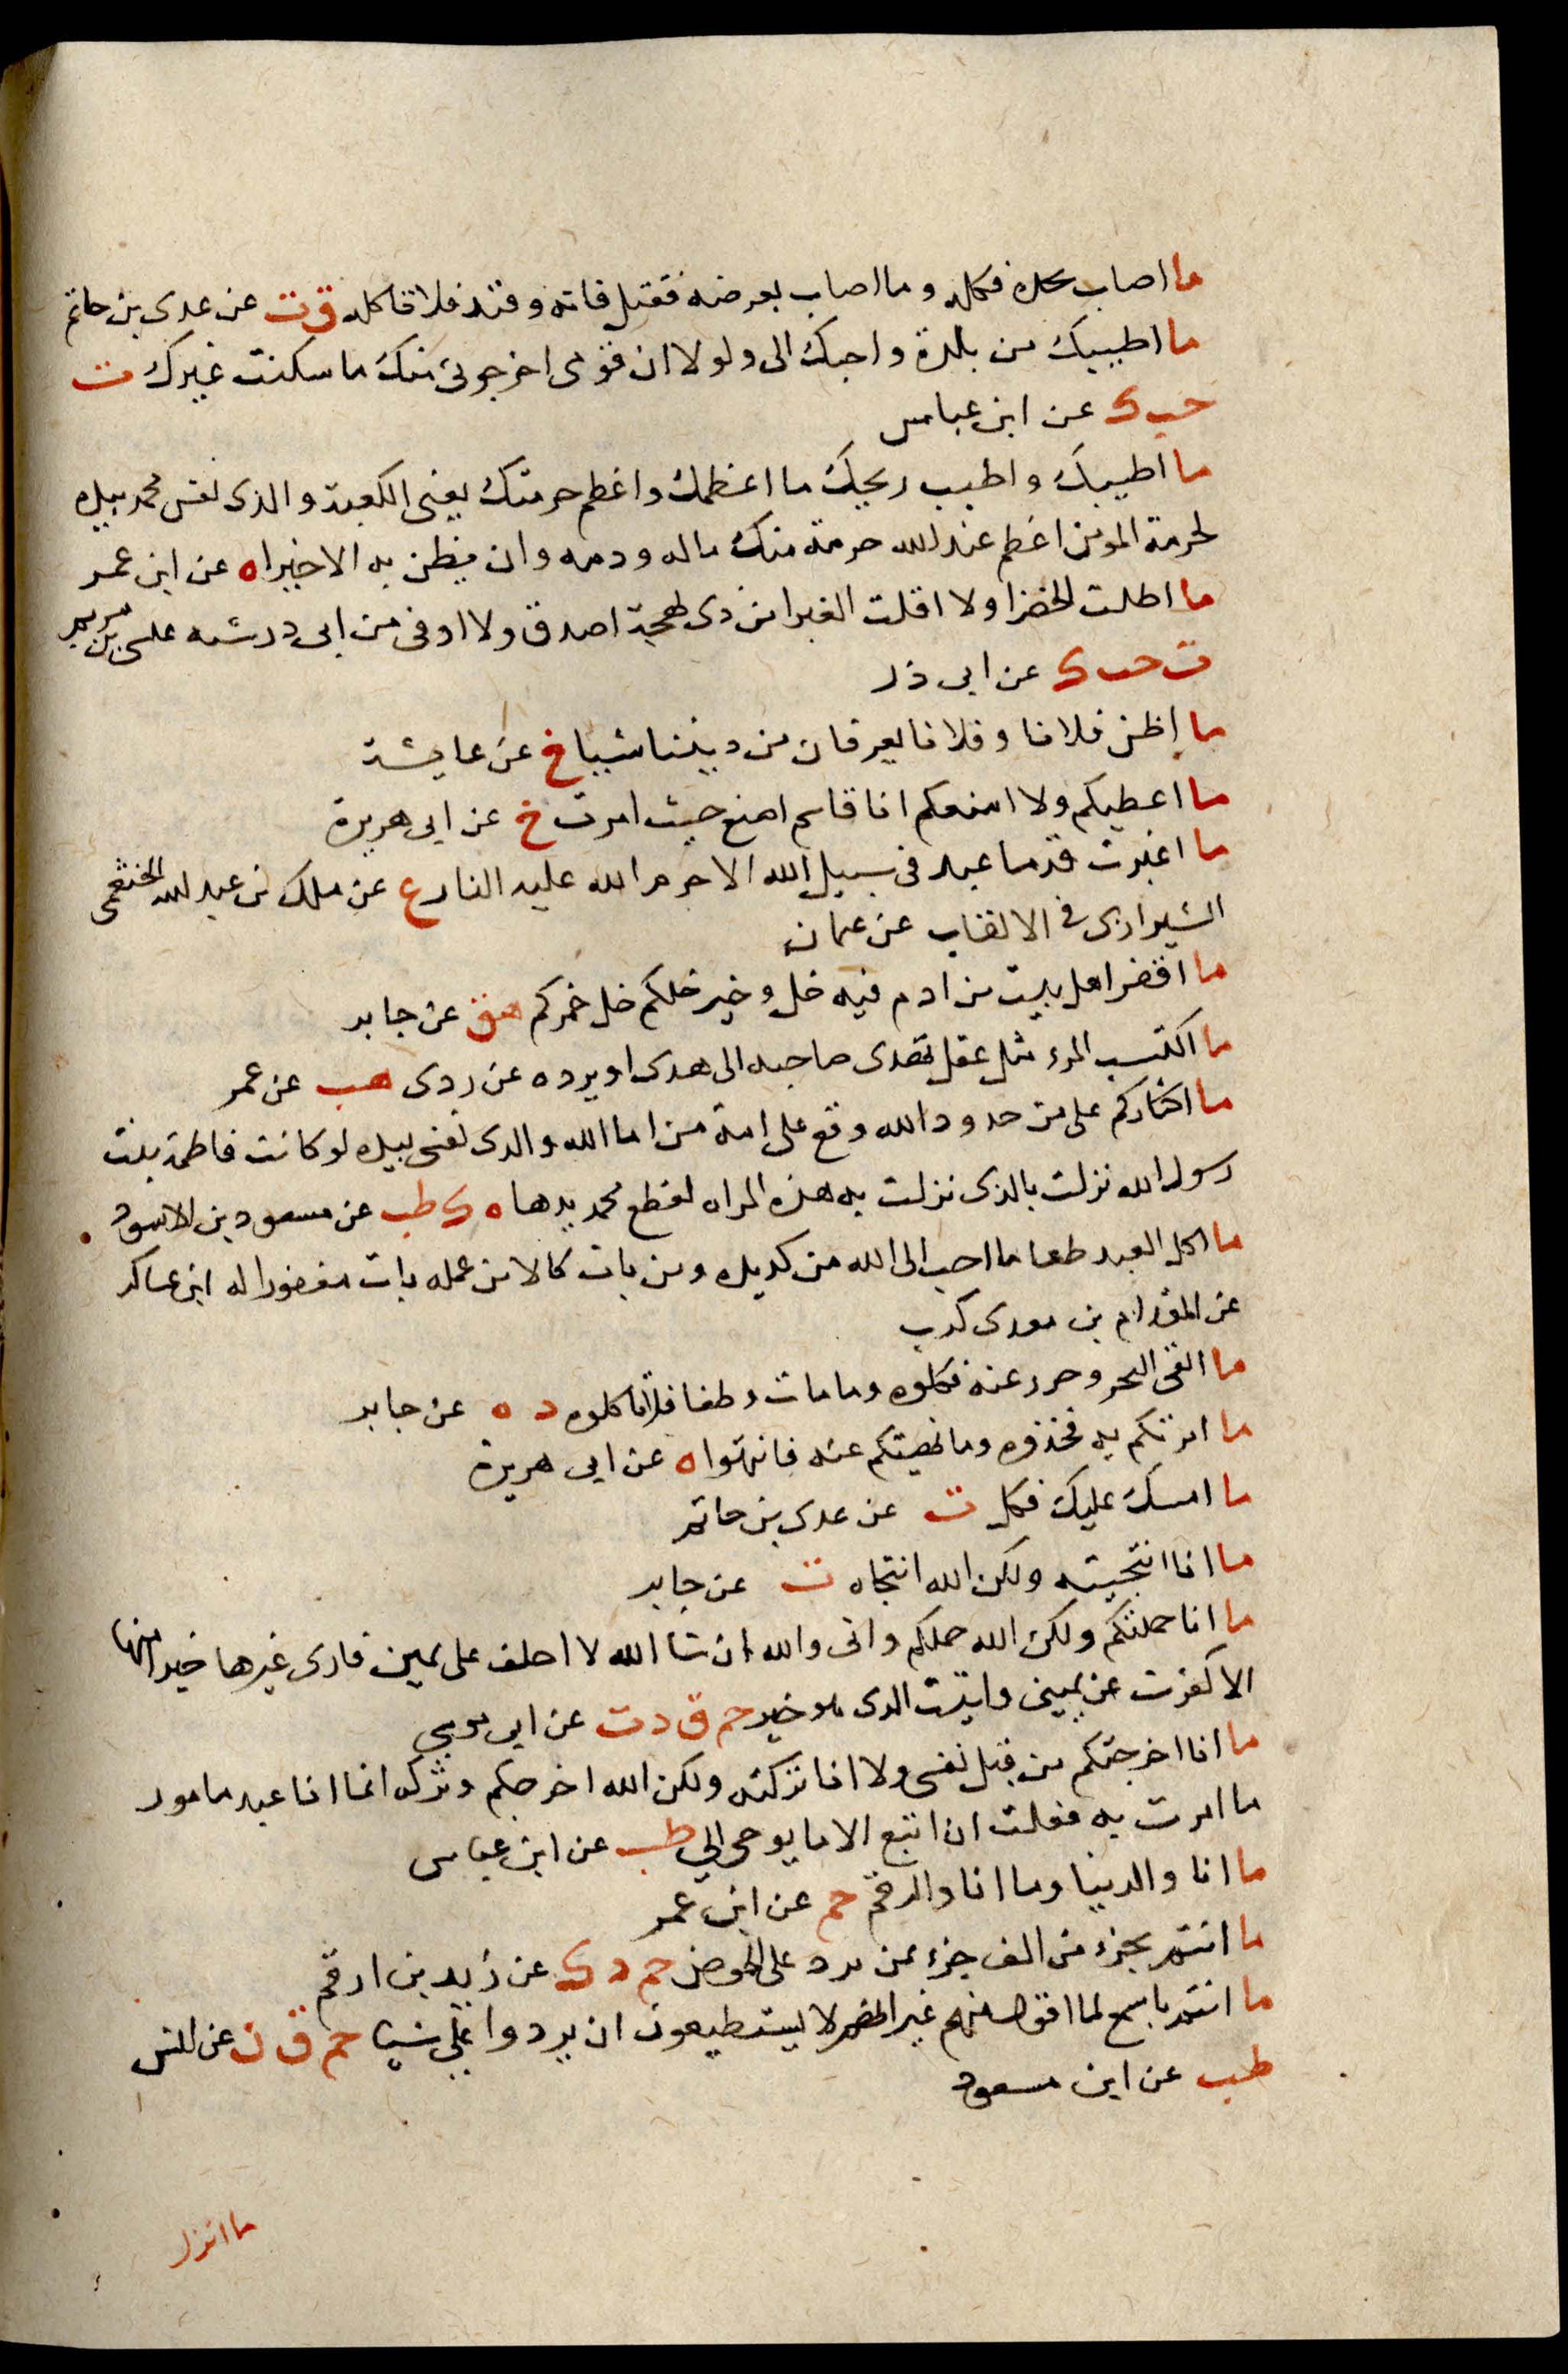 ما اصاب بحده فكله وما اصاب بعرضه فقتل فانه وقيذ فلا تاكله ق ت عن عدى بن حاتم
ما اطيبك من بلدة واحبك الى ولولا ان قومى اخرجونى منك ما سكنت غيرك ت
حب ك عن ابن عباس
ما اطيبك واطيب ريحك ما اعظمك واعظم حرمتك يعنى الكعبة والذى نفس محمد بيده
لحرمة المومن اعظم عند الله حرمة منك ماله ودمه وان يظن به الا خيرا ه عن ابن عمر
ما اظلت الخضرا ولا اقلت الغبرا من ذى لهجة اصدق ولا اوفى من ابى ذر شبه عيسى بن مريم
ت حب ك عن ابى ذر
ما اظن فلانا وفلانا يعرفان من ديننا شيا خ عن عايشة
ما اعطيكم ولا امنعكم انا قاسم اضع حيث امرت خ عن ابى هريرة
ما اغبرت قدما عبد فى سبيل الله الا حرم الله عليه النار ع عن ملك بن عبد الله الخثعمى
الشيرازى فى الالقاب عن عثمان
ما اقفر اهل بيت من ادم فيه خل وخير خلكم خل خمركم هق عن جابر
ما اكتسب المرء مثل عقل يهدى صاحبه الى هدى او يرده عن ردى هب عن عمر
ما اكثاركم على من حدود الله وقع على امة من اما الله والذى نفسى بيده لو كانت فاطمة بنت
رسول الله نزلت بالذى نزلت به هذه المراه لقطع محمد يدها ه ك طب عن مسعود بن الاسود
ما اكل العبد طعاما احب الى الله من كد يده ومن بات كالا من عمله بات مغفورا له ابن عساكر
عن المقدام بن معدى كرب
ما القى البحر وجزر عنه فكلوه وما مات وطفا فلا تاكلوه د ه عن جابر
ما امرتكم به فخذوه وما نهيتكم عنه فانتهوا ه عن ابى هريرة
ما امسك عليك فكل ت عن عدى بن حاتم
ما انا انتجيته ولكن الله انتجاه ت عن جابر
ما انا حملتكم ولكن الله حملكم وانى والله ان شا الله لا احلف على يمين فارى غيرها خيرا منها
الا كفرت عن يمينى واتيت الذى هو خير حم ق د ت عن ابى موسى
ما انا اخرجتكم من قبل نفسى ولا انا تركته ولكن الله اخرجكم وتركه انما انا عبد مامور
ما امرت به فعلت ان اتبع الا ما يوحى الي طب عن ابن عباس
ما انا والدنيا وما انا والرقم حم عن ابن عمر
ما انتم بجزء من الف جزء ممن يرد على الحوض حم د ك عن زيد بن ارقم
ما انتم باسمع لما اقول منهم غير انهم لا يستطيعون ان يردوا علي شيا حم ق ن عن انس
طب عن ابن مسعود
ما انزل